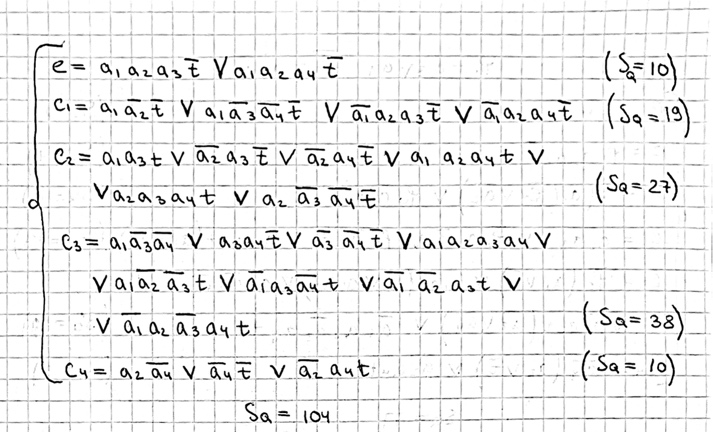 e = a₁a₂a₃t̅ ∨ a₁a₂a₄t̅ (Sq=10)
c₁ = a₁a̅₂t̅ ∨ a₁a̅₃a̅₄t̅ ∨ a̅₁a₂a₃t̅ ∨ a̅₁a₂a₄t̅ (Sq=19)
c₂ = a₁a₃t ∨ a̅₂a₃t̅ ∨ a̅₂a₄t̅ ∨ a₁a₂a₄t ∨
∨ a₂a₃a₄t ∨ a₂a̅₃a̅₄t̅ (Sq=27)
c₃ = a₁a̅₃a̅₄ ∨ a₃a₄t̅ ∨ a̅₃a̅₄t̅ ∨ a₁a₂a₃a₄ ∨
∨ a₁a̅₂a̅₃t ∨ a̅₁a₃a̅₄t ∨ a̅₁a̅₂a₃t ∨
∨ a̅₁a₂a̅₃a₄t (Sq=38)
c₄ = a₂a̅₄ ∨ a̅₄t̅ ∨ a̅₂a₄t (Sq=10)
Sq = 104